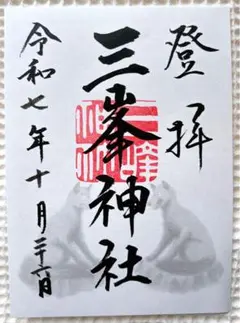 登拝
三峯神社
令和七年十月二十六日